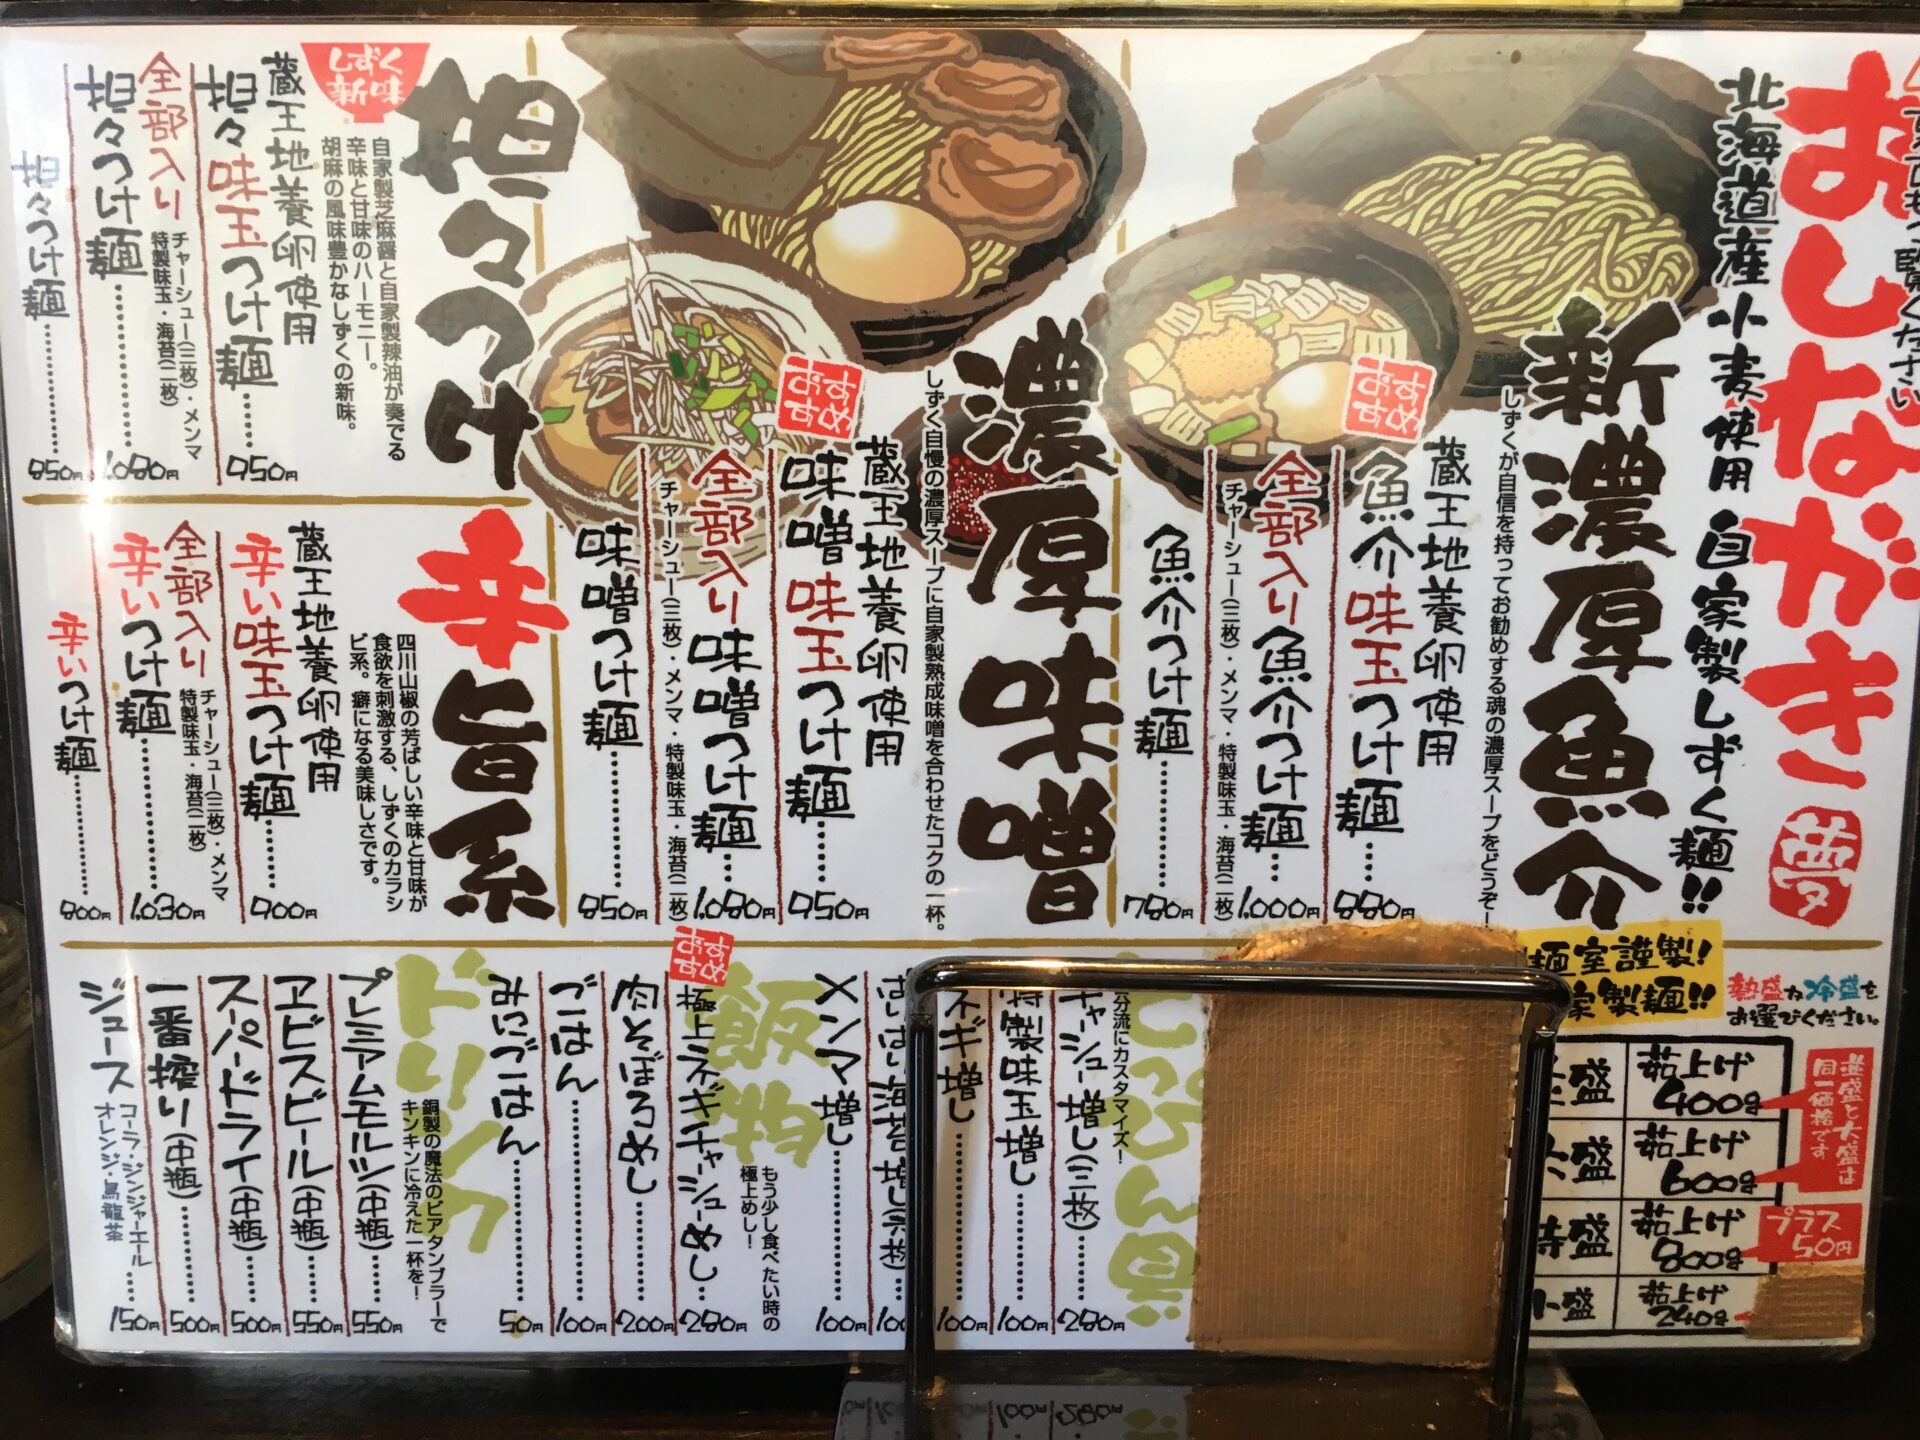 おしながき
夢
北海道産小麦使用 自家製しずく麺!!
新濃厚魚介
しずくが自信を持ってお勧めする魂の濃厚スープをどうぞ!
おすすめ
蔵王地養卵使用
魚介味玉つけ麺……880円
全部入り魚介つけ麺…1,000円
チャーシュー(三枚)・メンマ・特製味玉・海苔(二枚)
魚介つけ麺…………780円
濃厚味噌
しずく自慢の濃厚スープに自家製熟成味噌を合わせたコクの一杯。
おすすめ
蔵王地養卵使用
味噌味玉つけ麺……950円
全部入り味噌つけ麺…1,080円
チャーシュー(三枚)・メンマ・特製味玉・海苔(二枚)
味噌つけ麺…………850円
担々つけ
自家製芝麻醤と自家製辣油が奏でる
辛味と甘味のハーモニー。
胡麻の風味豊かなしずくの新味。
蔵王地養卵使用
担々味玉つけ麺……950円
全部入り
担々つけ麺…………1,080円
チャーシュー(三枚)・メンマ
特製味玉・海苔(二枚)
担々つけ麺…………850円
辛旨系
四川山椒の芳ばしい辛味と甘味が
食欲を刺激する、しずくのカラシ
ビ系。癖になる美味しさです。
蔵王地養卵使用
辛い味玉つけ麺……900円
全部入り
辛いつけ麺…………1,030円
チャーシュー(三枚)・メンマ
特製味玉・海苔(二枚)
辛いつけ麺…………800円
熱盛か冷盛を
お選びください。
室謹製!
家製麺!!
並盛と大盛は
同一価格です
盛 茹上げ400g
盛 茹上げ600g
特盛 茹上げ800g
プラス50円
小盛 茹上げ240g
分流にカスタマイズ!
チャーシュー増し(三枚)……280円
特製味玉増し…………100円
ネギ増し…………100円
海苔増し
メンマ増し…………100円
飯物
もう少し食べたい時の
極上めし!
おすすめ
極上ネギチャーシューめし…280円
肉そぼろめし…………200円
ごはん…………100円
みにごはん…………50円
ドリンク
銅製の魔法のビアタンブラーで
キンキンに冷えた一杯を!
プレミアムモルツ(中瓶)……550円
ヱビスビール(中瓶)……550円
スーパードライ(中瓶)……500円
一番搾り(中瓶)…………500円
ジュース コーラ・ジンジャーエール
オレンジ・烏龍茶……150円